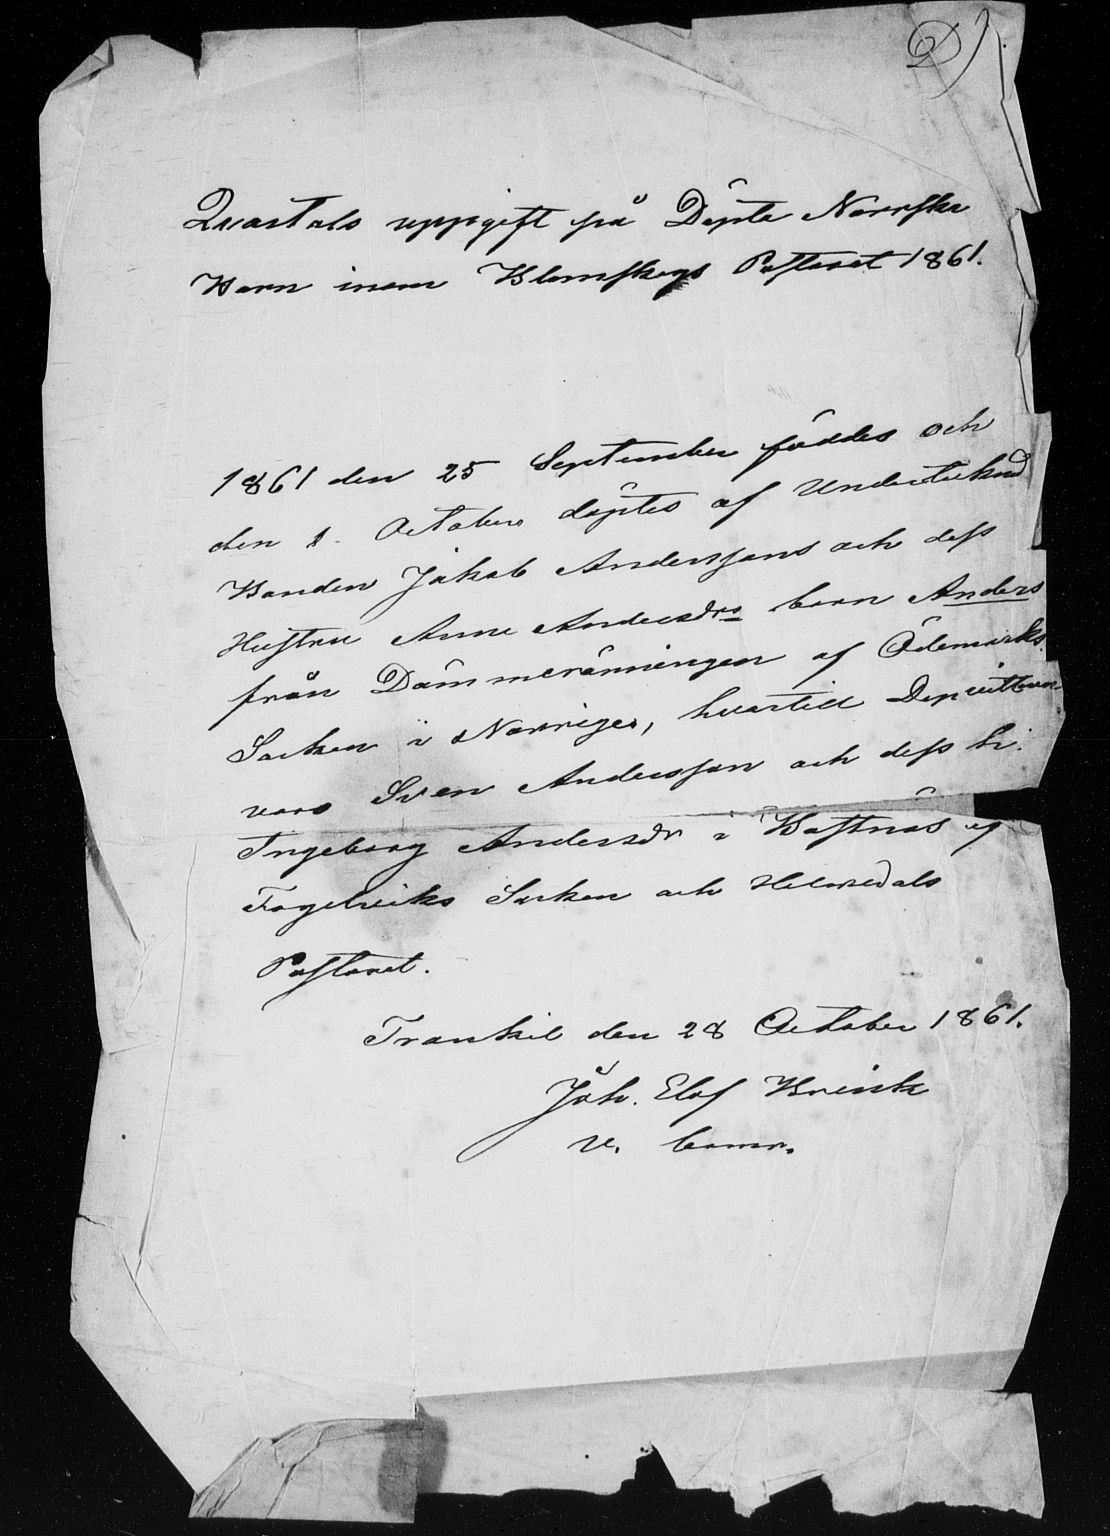 D)
Quartals uppgift på Döpta Norrska
Barn inom Blomskogs Pastorat 1861.
1861 den 25 September föddes och
den 1. October döptes af Undertecknad
Bonden Jakob Anderssons och dess
Hustru Anna Andersdrs barn Anders
från Dammeränningen af Ödemarks
Socken i Norriges, hvartill Depvittnen
voro Sven Andersson och dess h:
Ingeborg Andersdr i Bastnäs af
Fogelviks Socken och Holmedals
Pastorat.
Trankil den 28 October 1861.
Joh. Elof Brink
v. Comr.